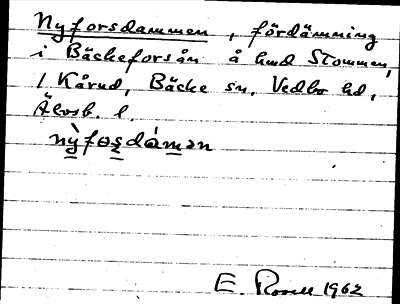 Nyforsdammen, fördämning
i Bäckeforsån å hmd Stommen,
1 Kårud, Bäcke sn, Vedbo hd,
Älvsb. l.
nỳfoșdámən
E. Rosell 1962